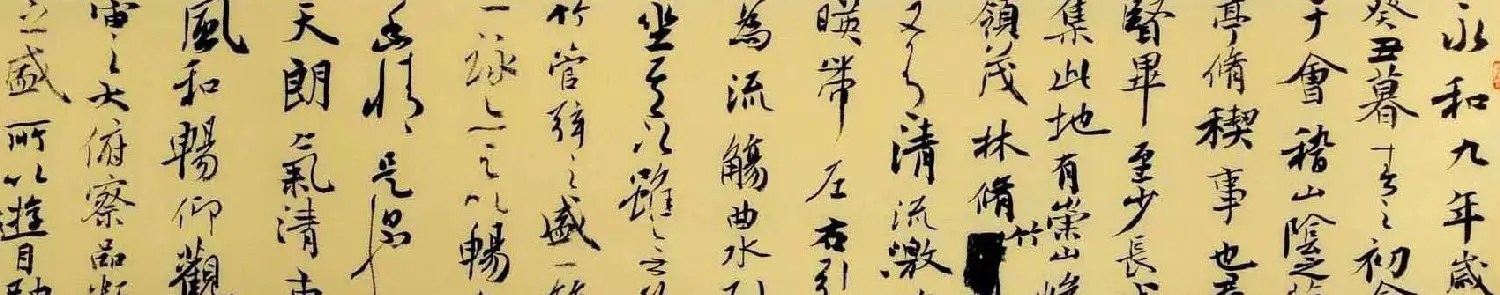 永和九年歲
癸丑暮春之初
于會稽山陰之
亭脩稧事也
賢畢至少長
集此地有崇山
領茂林脩竹
又有清流激
暎帶左右引
為流觴曲水
坐其次雖無
竹管弦之盛一
一詠亦足以暢
幽情是日也
天朗氣清
風和暢仰觀
宙之大俯察品
之盛所以遊目